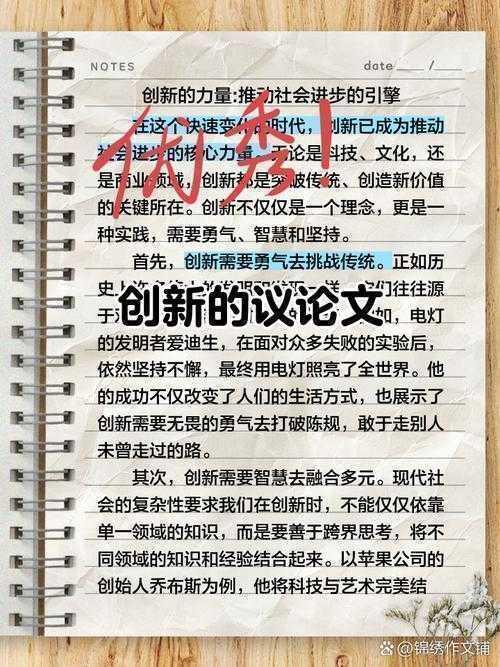 NOTES
date ___ / ___
创新的力量:推动社会进步的引擎
优秀!
在这个快速变化的时代,创新已成为推动
社会进步的核心力量。无论是科技、文化,还
是商业领域,创新都是突破传统、创造新价值
的关键所在。创新不仅仅是一个理念,更是一
种实践,需要勇气、智慧和坚持。
首先,创新需要勇气去挑战传统。正如历
往往源
创新的议论文
于 电灯
的发明者爱迪生,在面对众多失败的实验后,
依然坚持不懈,最终用电灯照亮了全世界。他
的成功不仅改变了人们的生活方式,也展示了
创新需要无畏的勇气去打破陈规,敢于走别人
未曾走过的路。
其次,创新需要智慧去融合多元。现代社
会的复杂性要求我们在创新时,不能仅仅依靠
单一领域的知识,而是要善于跨界思考,将不
同领域的知识和经验结合起来。以苹果公司的
创始人乔布斯为例,他将科技与艺术完美结
锦绣作文铺